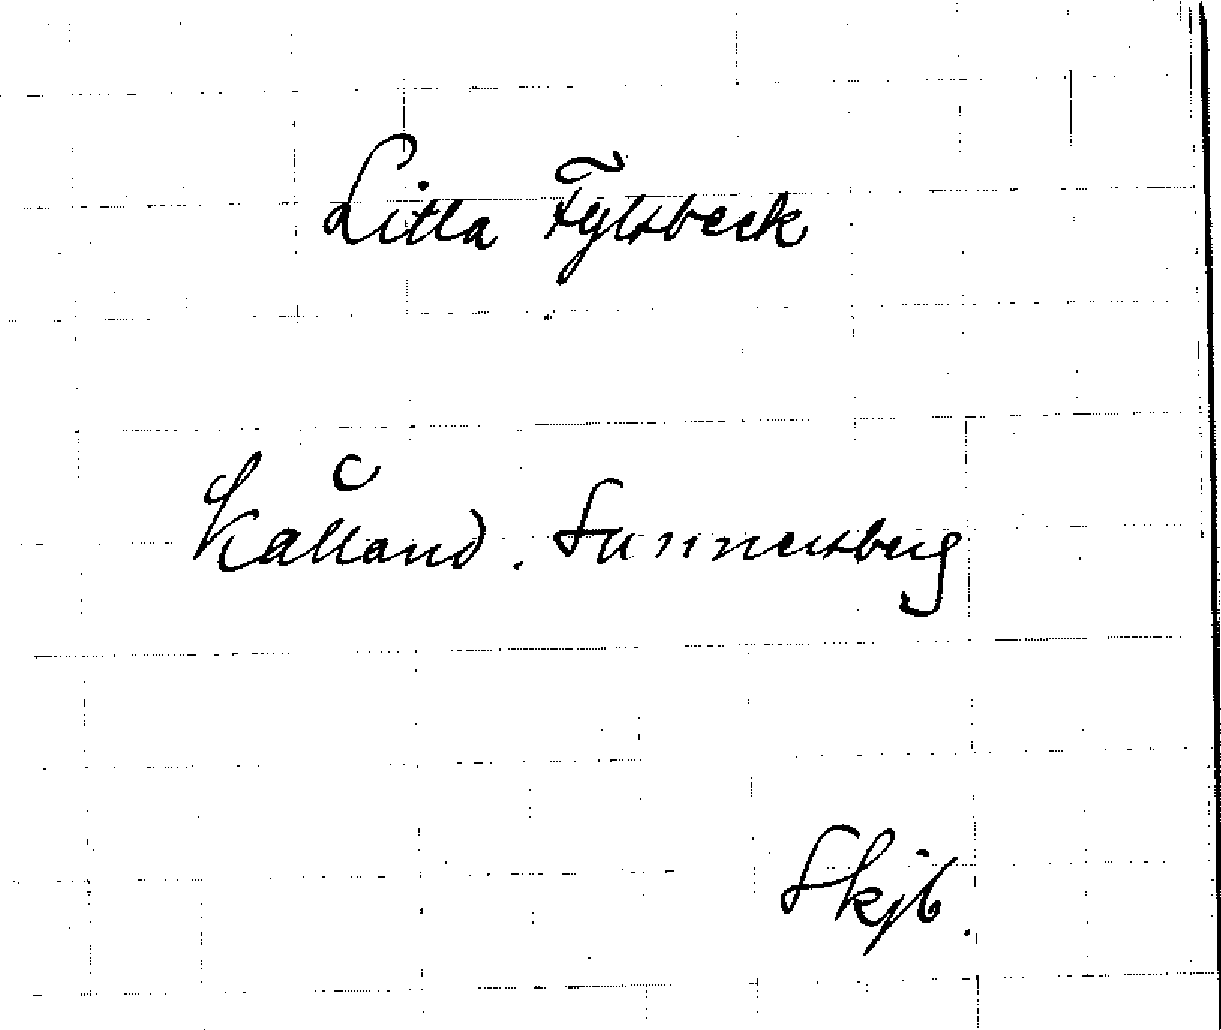 Lilla Fylsbeck
Kålland. Sunnersberg
Skjb.